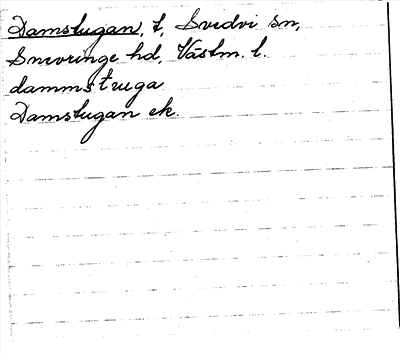 Damstugan, t, Svedvi sn,
Snevringe hd, Västm. l.
dammstuga
Damstugan ek.